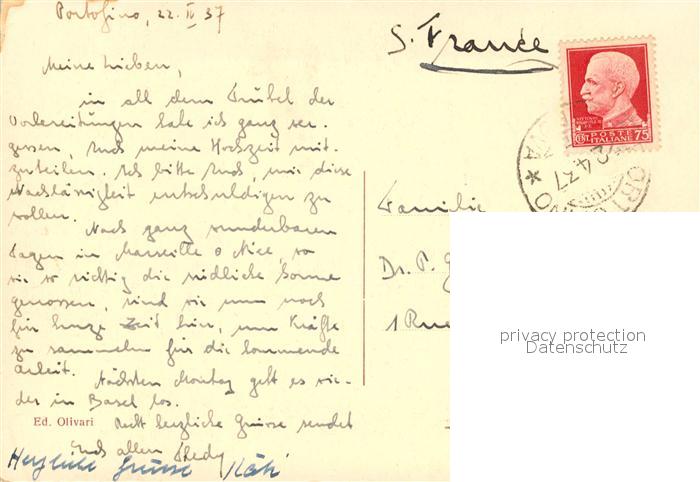 Portofino, 22. IV 37
S. France
Meine Lieben,
in all dem Trubel der
Vorbereitungen habe ich ganz ver-
gessen, Euch meine Hochzeit mit-
zuteilen. Ich bitte Euch, mir diese
Nachlässigkeit entschuldigen zu
wollen.
Nach ganz wunderbaren
Tagen in Marseille & Nice, wo
wir so richtig die südliche Sonne
genossen, sind wir nun noch
für kurze Zeit hier, um Kräfte
zu sammeln für die kommende
Arbeit.
Nächsten Montag geht es wie-
der in Basel los.
Recht herzliche Grüsse sendet
Euch allen
Herzliche Grüsse Käti
Ed. Olivari
POSTE
ITALIANE 75
CENT.
24.37
Familie
Dr. P. G
1 Rue
privacy protection
Datenschutz